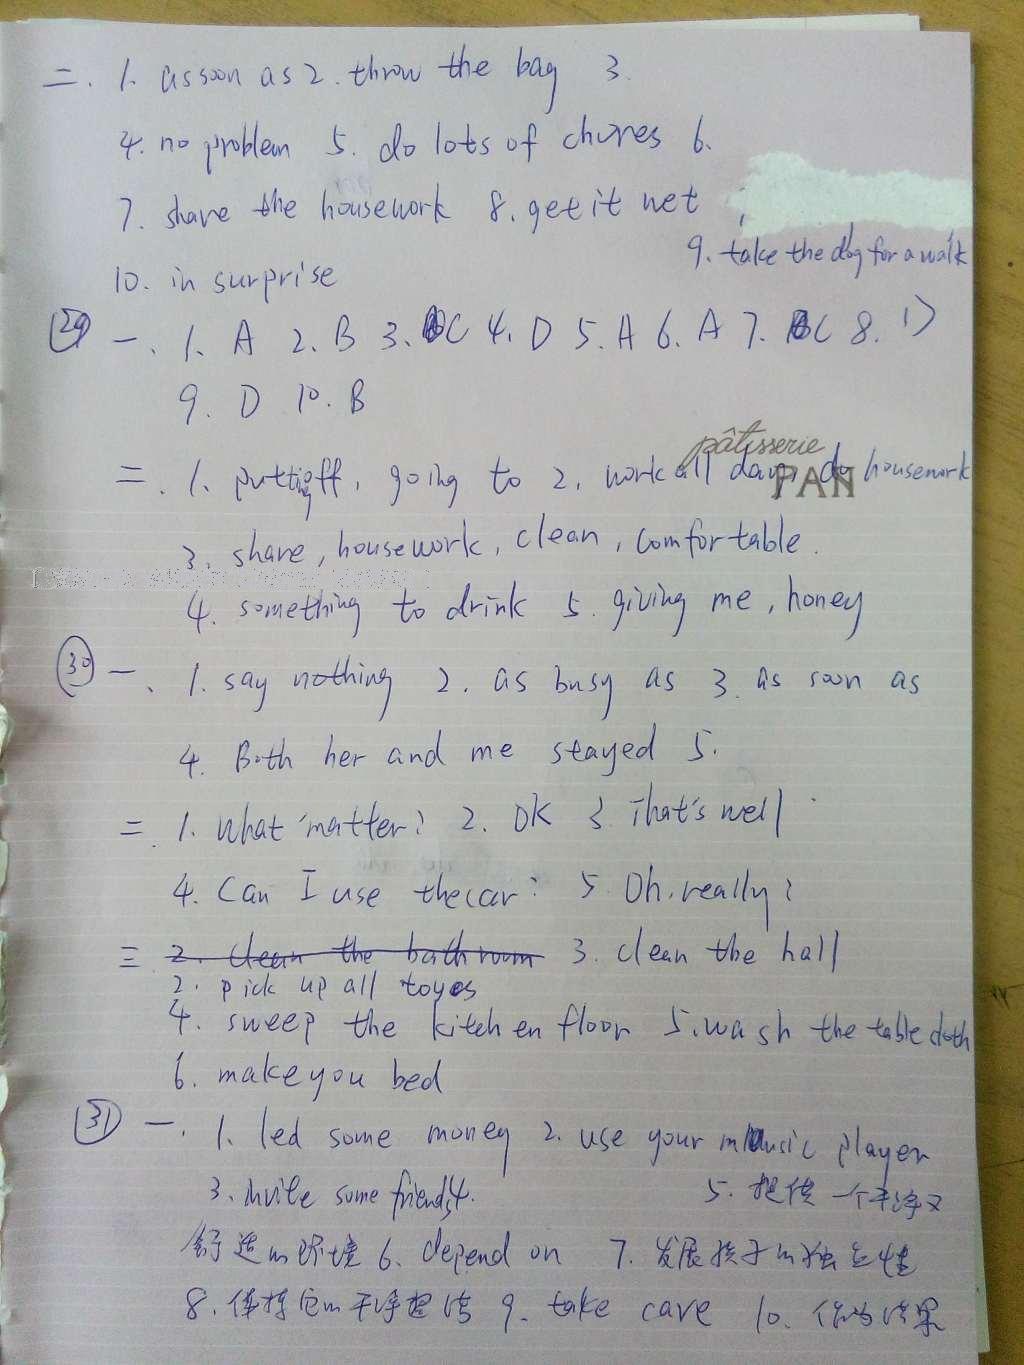 二. 1. as soon as 2. throw the bag 3.
4. no problem 5. do lots of chures 6.
7. share the housework 8. get it wet ;
9. take the dog for a walk
10. in surprise
29 一. 1. A 2. B 3. C 4. D 5. A 6. A 7. C 8. D
9. D 10. B
pâtisserie
PAN
二. 1. putting off, going to 2. work all day, do housework
3. share, housework, clean, comfortable.
4. something to drink 5. giving me, honey
30 一. 1. say nothing 2. as busy as 3. as soon as
4. Both her and me stayed 5.
二 1. What 'matter? 2. OK 3. That's well
4. Can I use the car? 5. Oh. really?
三 2. clean the bathroom 3. clean the hall
2. pick up all toyes
4. sweep the kitchen floor 5. wash the table cloth
6. make you bed
31 一. 1. led some money 2. use your music player
3. invite some friends 4. 5. 提供一个干净又
舒适的环境 6. depend on 7. 发展孩子的独立性
8. 保持它的干净整洁 9. take care 10. 作为结果